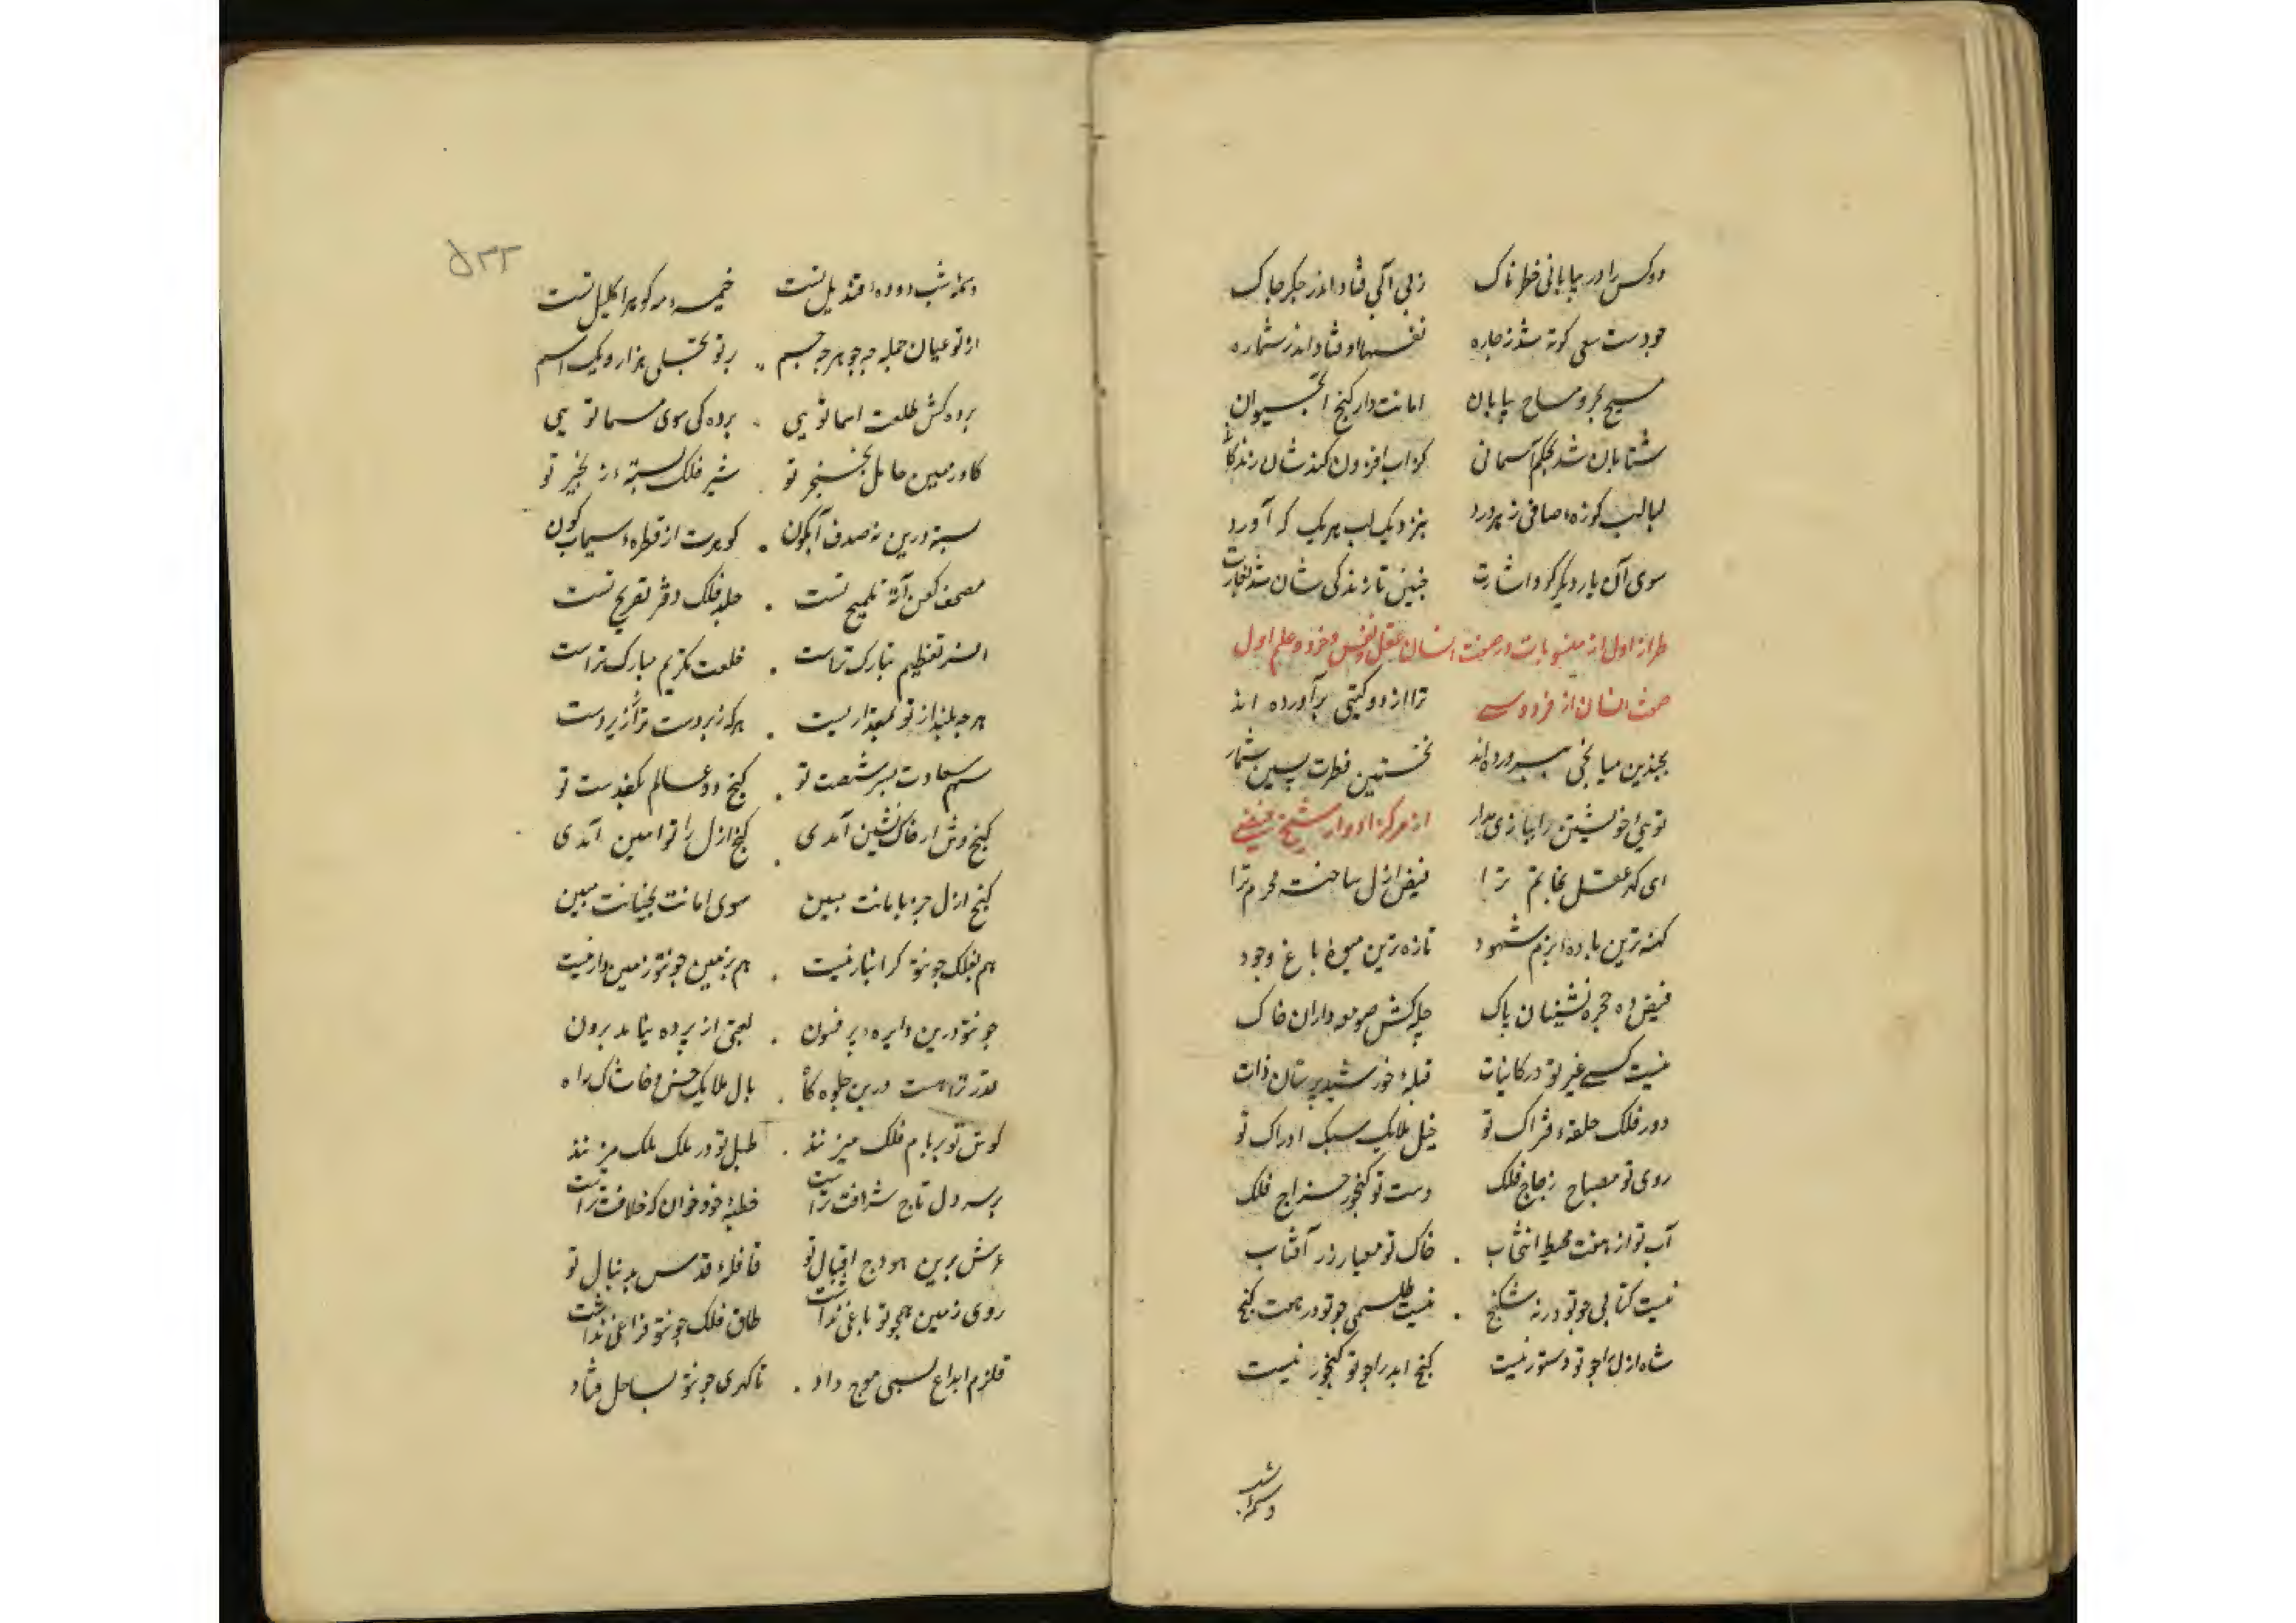 دو کس را در بیابانی خطرناک زبی آبی فتاد اندر جکر چاک
چو دست سعی کوته شد ز چاره نفسها اوفتاد اندر شماره
مسیح بحر و مساح بیابان امانت دار کنج آب حیوان
شتابان شد بحکم آسمانی کز آب افزون کندشان زندکانی
لبالب کوزهٔ صافی ز پرورد بنزدیک لب هر یک که آورد
سوی آن یار دیکر کرد اشارت چنین تا زندکی شان شد بغارت
طراز اول از منسوبات در صفت انسان عقل و نفس و خرد و علم اول
صفت انسان از فردوسی ترا از دو کیتی برآورده اند
بچندین میانجی بپرورده اند نخستین فطرت پسین شمار
تویی خویشتن را ببازی مدار از مرکز ادوار شیخ فیضی
ای که عقل بخاتم ترا فیض ازل ساخته محرم ترا
کهنه ترین بادهٔ بزم شهود تازه ترین میوهٔ باغ وجود
فیض ده حجره نشینان پاک چله کش صومعه داران خاک
نیست کسی غیر تو در کاینات قبلهٔ خورشید پرستان ذات
دور فلک حلقهٔ فتراک تو خیل ملایک سبک ادراک تو
روی تو مصباح زجاج فلک دست تو کنجور خراج فلک
آب تو از هفت محیط انتخاب . خاک تو معیار زر آفتاب
نیست کتابی چو تو در نه شکنج . نیست طلسمی چو تو در هفت کنج
شاه ازل را چو تو دستور نیست کنج ابد را چو تو کنجور نیست
وسمهٔ شب
۵۳۳
وسمهٔ شب دودهٔ قندیل تست خمسهٔ در کوهر اکلیل تست
از تو عیان جمله چه جوهر چه جسم بر تو تجلی هزار و یک اسم
پرده کش طلعت اسما تویی . پرده کی سوی مسما تویی
کاو زمین حامل خنجر تو . شیر فلک بستهٔ زنجیر تو
بسته درین نه صدف آبکون . کوهرت از قطرهٔ سیماب کون
مصحف کن آیهٔ تلمیح تست . جلد فلک دفتر تفریح تست
افسر تعظیم تبارک تراست . خلعت تکریم مبارک تراست
هرچه بلند از تو بمقدار پست . هرکه زبردست ترا زیردست
سهم سعادت بسر شصت تو . کنج دو عالم بکف دست تو
کنج وش ار خاک نشین آمدی . کنج ازل را تو امین آمدی
کنج ازل جز بامانت مبین سوی امانت بخیانت مبین
هم بفلک چون تو کرانبار نیست . هم بزمین چون تو زمین دار نیست
چون تو درین دایرهٔ پر فنون . لعبتی از پرده نیامد برون
قدر ترا هست درین جلوه کاه . بال ملایک خس و خاشاک راه
کوس تو بر بام فلک میزنند . طبل تو در ملک ملک میزنند
بر سر دل تاج شرافت تراست خطبهٔ خود خوان که خلافت تراست
عرش برین هودج اقبال تو قافلهٔ قدس بدنبال تو
روی زمین همچو تو باغی نداشت طاق فلک چون تو چراغی نداشت
قلزم ابداع بسی موج داد . تا کهری چون تو بساحل فتاد